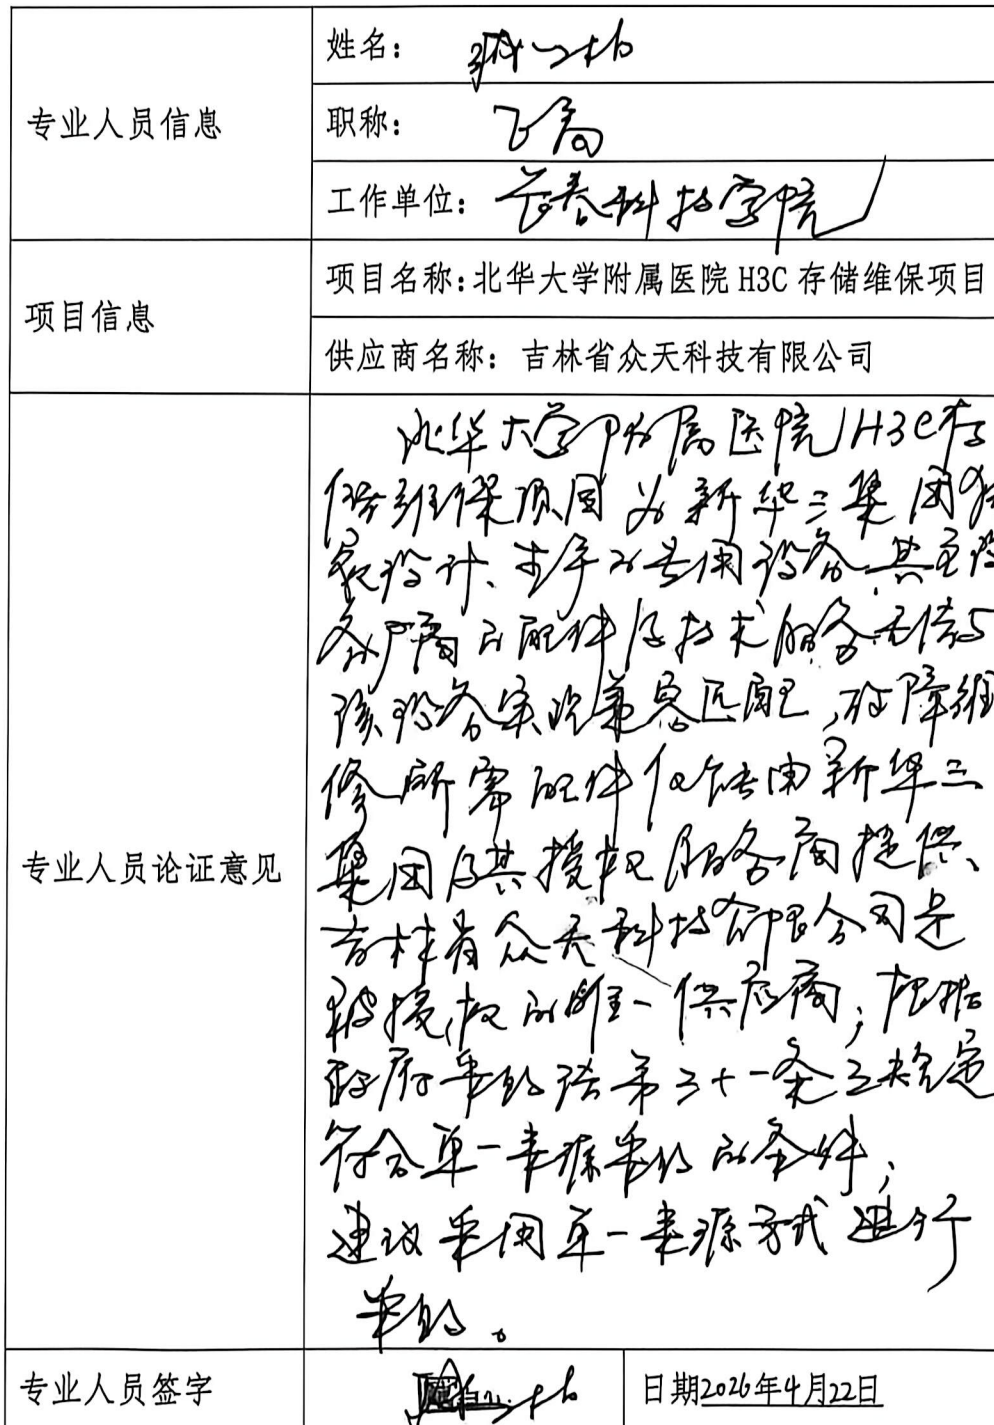 专业人员信息
姓名：
职称：正高
工作单位：长春科技学院
项目信息
项目名称：北华大学附属医院 H3C 存储维保项目
供应商名称：吉林省众天科技有限公司
专业人员论证意见
北华大学附属医院H3C存
储维保项目为新华三集团独
家设计、生产的专用设备，其它设
备厂商的配件及技术服务无法与
该设备实现兼容匹配，故障维
修所需配件仅能由新华三
集团及其授权服务商提供、
吉林省众天科技有限公司是
被授权的唯一供应商；根据
政府采购法第三十一条之规定
符合单一来源采购的条件；
建议采用单一来源方式进行
采购。
专业人员签字
日期2026年4月22日